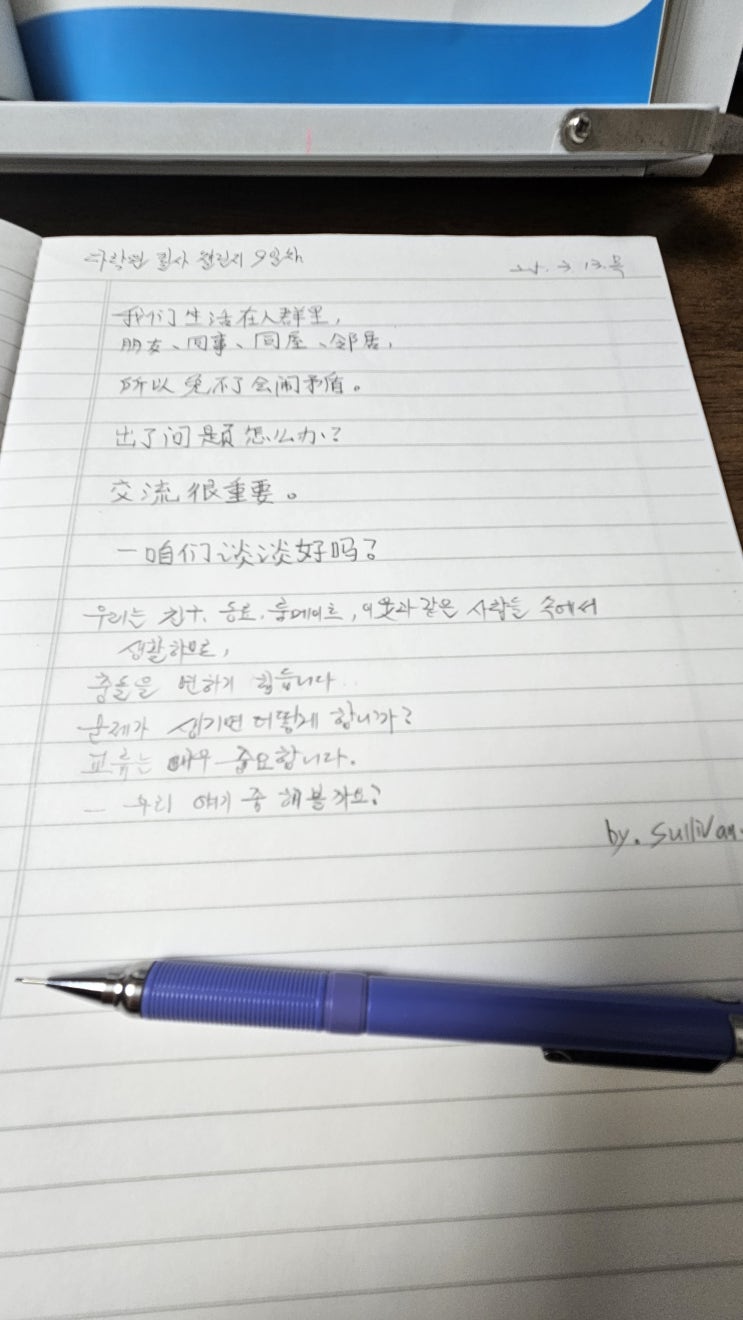 다락원 필사 챌린지 9일차
25. 3. 13. 목
我们生活在人群里,
朋友、同事、同屋、邻居,
所以免不了会闹矛盾。
出了问题怎么办?
交流很重要。
—咱们谈谈好吗?
우리는 친구, 동료, 룸메이트, 이웃과 같은 사람들 속에서
생활하므로,
충돌을 면하기 힘듭니다..
문제가 생기면 어떻게 합니까?
교류는 매우 중요합니다.
— 우리 얘기 좀 해볼까요?
by. Sullivan.